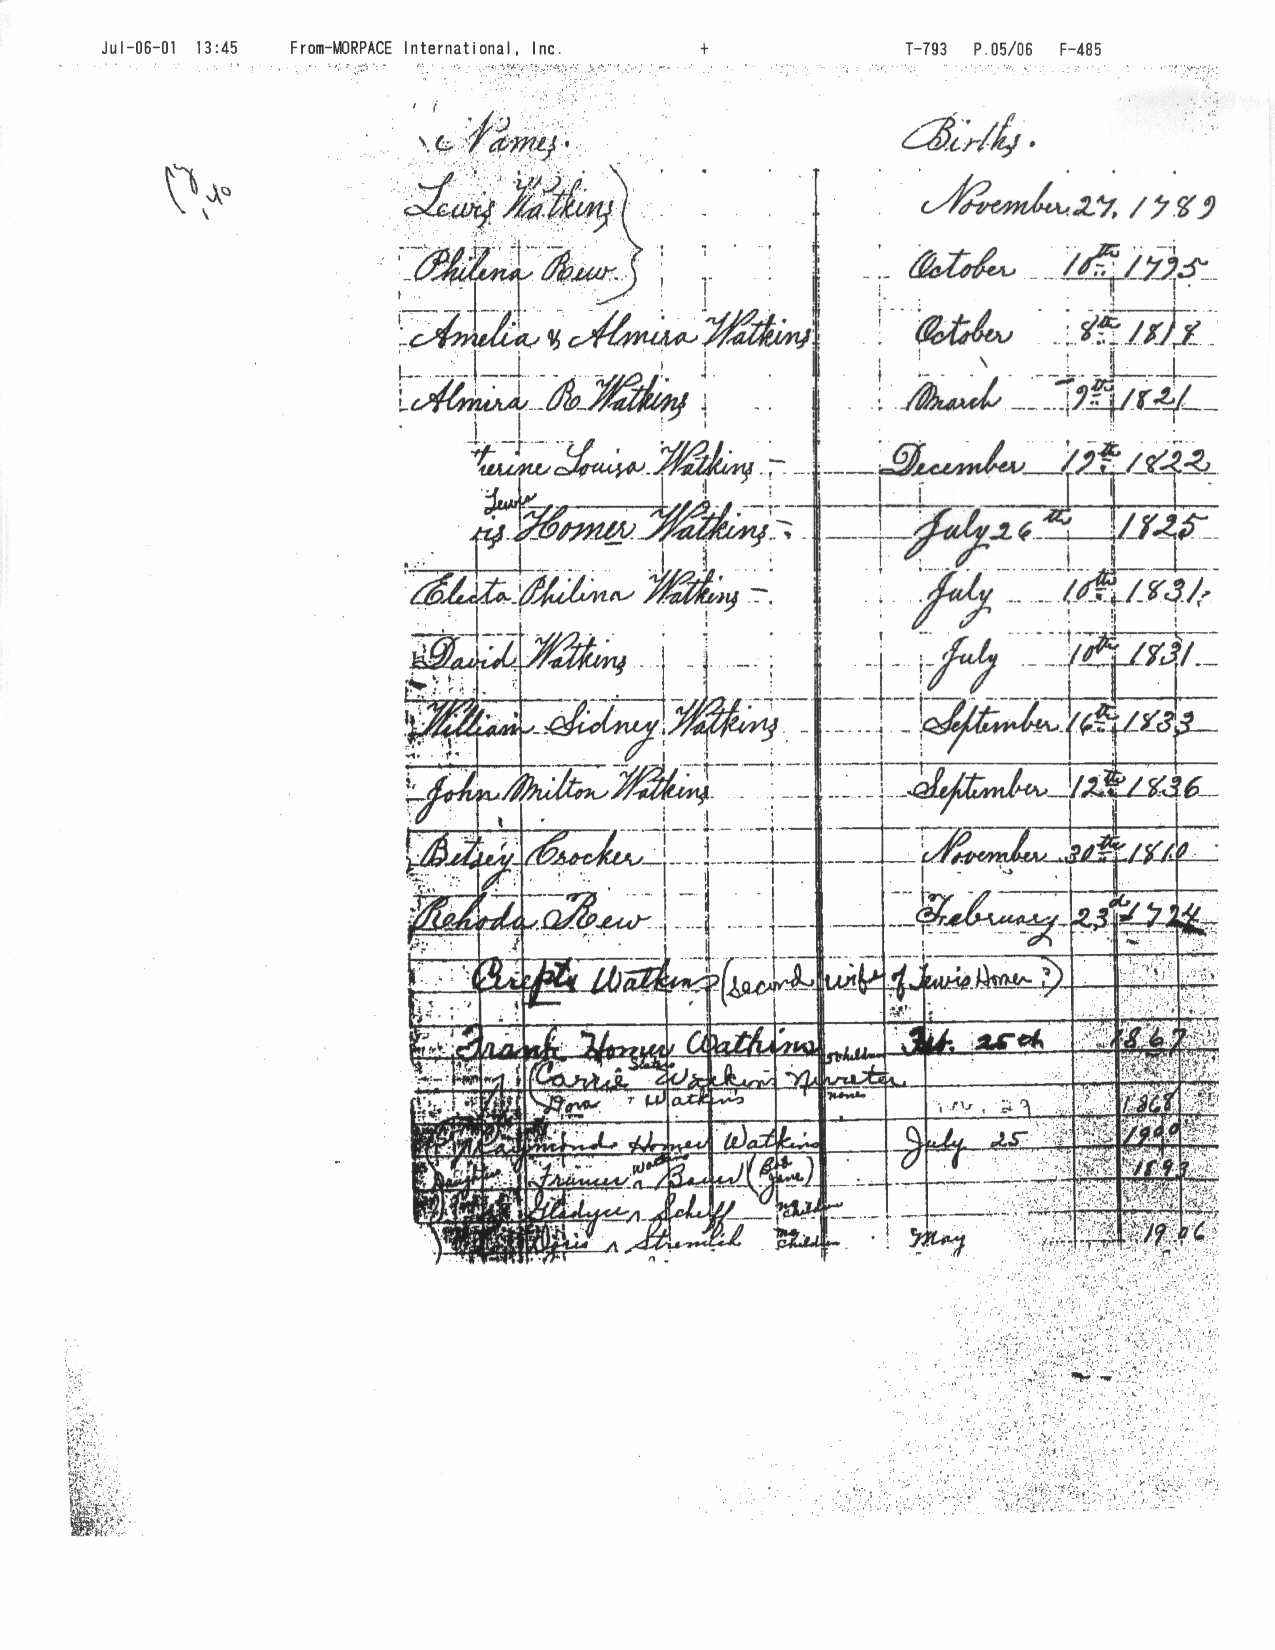 Jul-06-01 13:45 From-MORPACE International, Inc. + T-793 P.05/06 F-485
Names. Births.
Lewis Watkins November 27, 1789
Philena Rew October 10th 1795
Amelia & Almira Watkins October 8th 1818
Almira R Watkins March 9th 1821
terine Louisa Watkins - December 12th 1822
Lewis
is Homer Watkins - July 26th 1825
Electa Philina Watkins - July 10th 1831
David Watkins July 10th 1831
William Sidney Watkins September 16th 1833
John Milton Watkins September 12th 1836
Betsey Crocker November 30th 1810
Rehoda Rew February 23d 1724
Watkins (second wife of Lewis Homer?)
Frank Homer Watkins children 25th 1867
(Carrie Watkins
Dora Watkins none 29 1868
Homer Watkins July 25 1900
Daughter Frances Watkins Bauer (Bob Jane) 1893
Scheff no children
Doris Stremlich no children May 1906